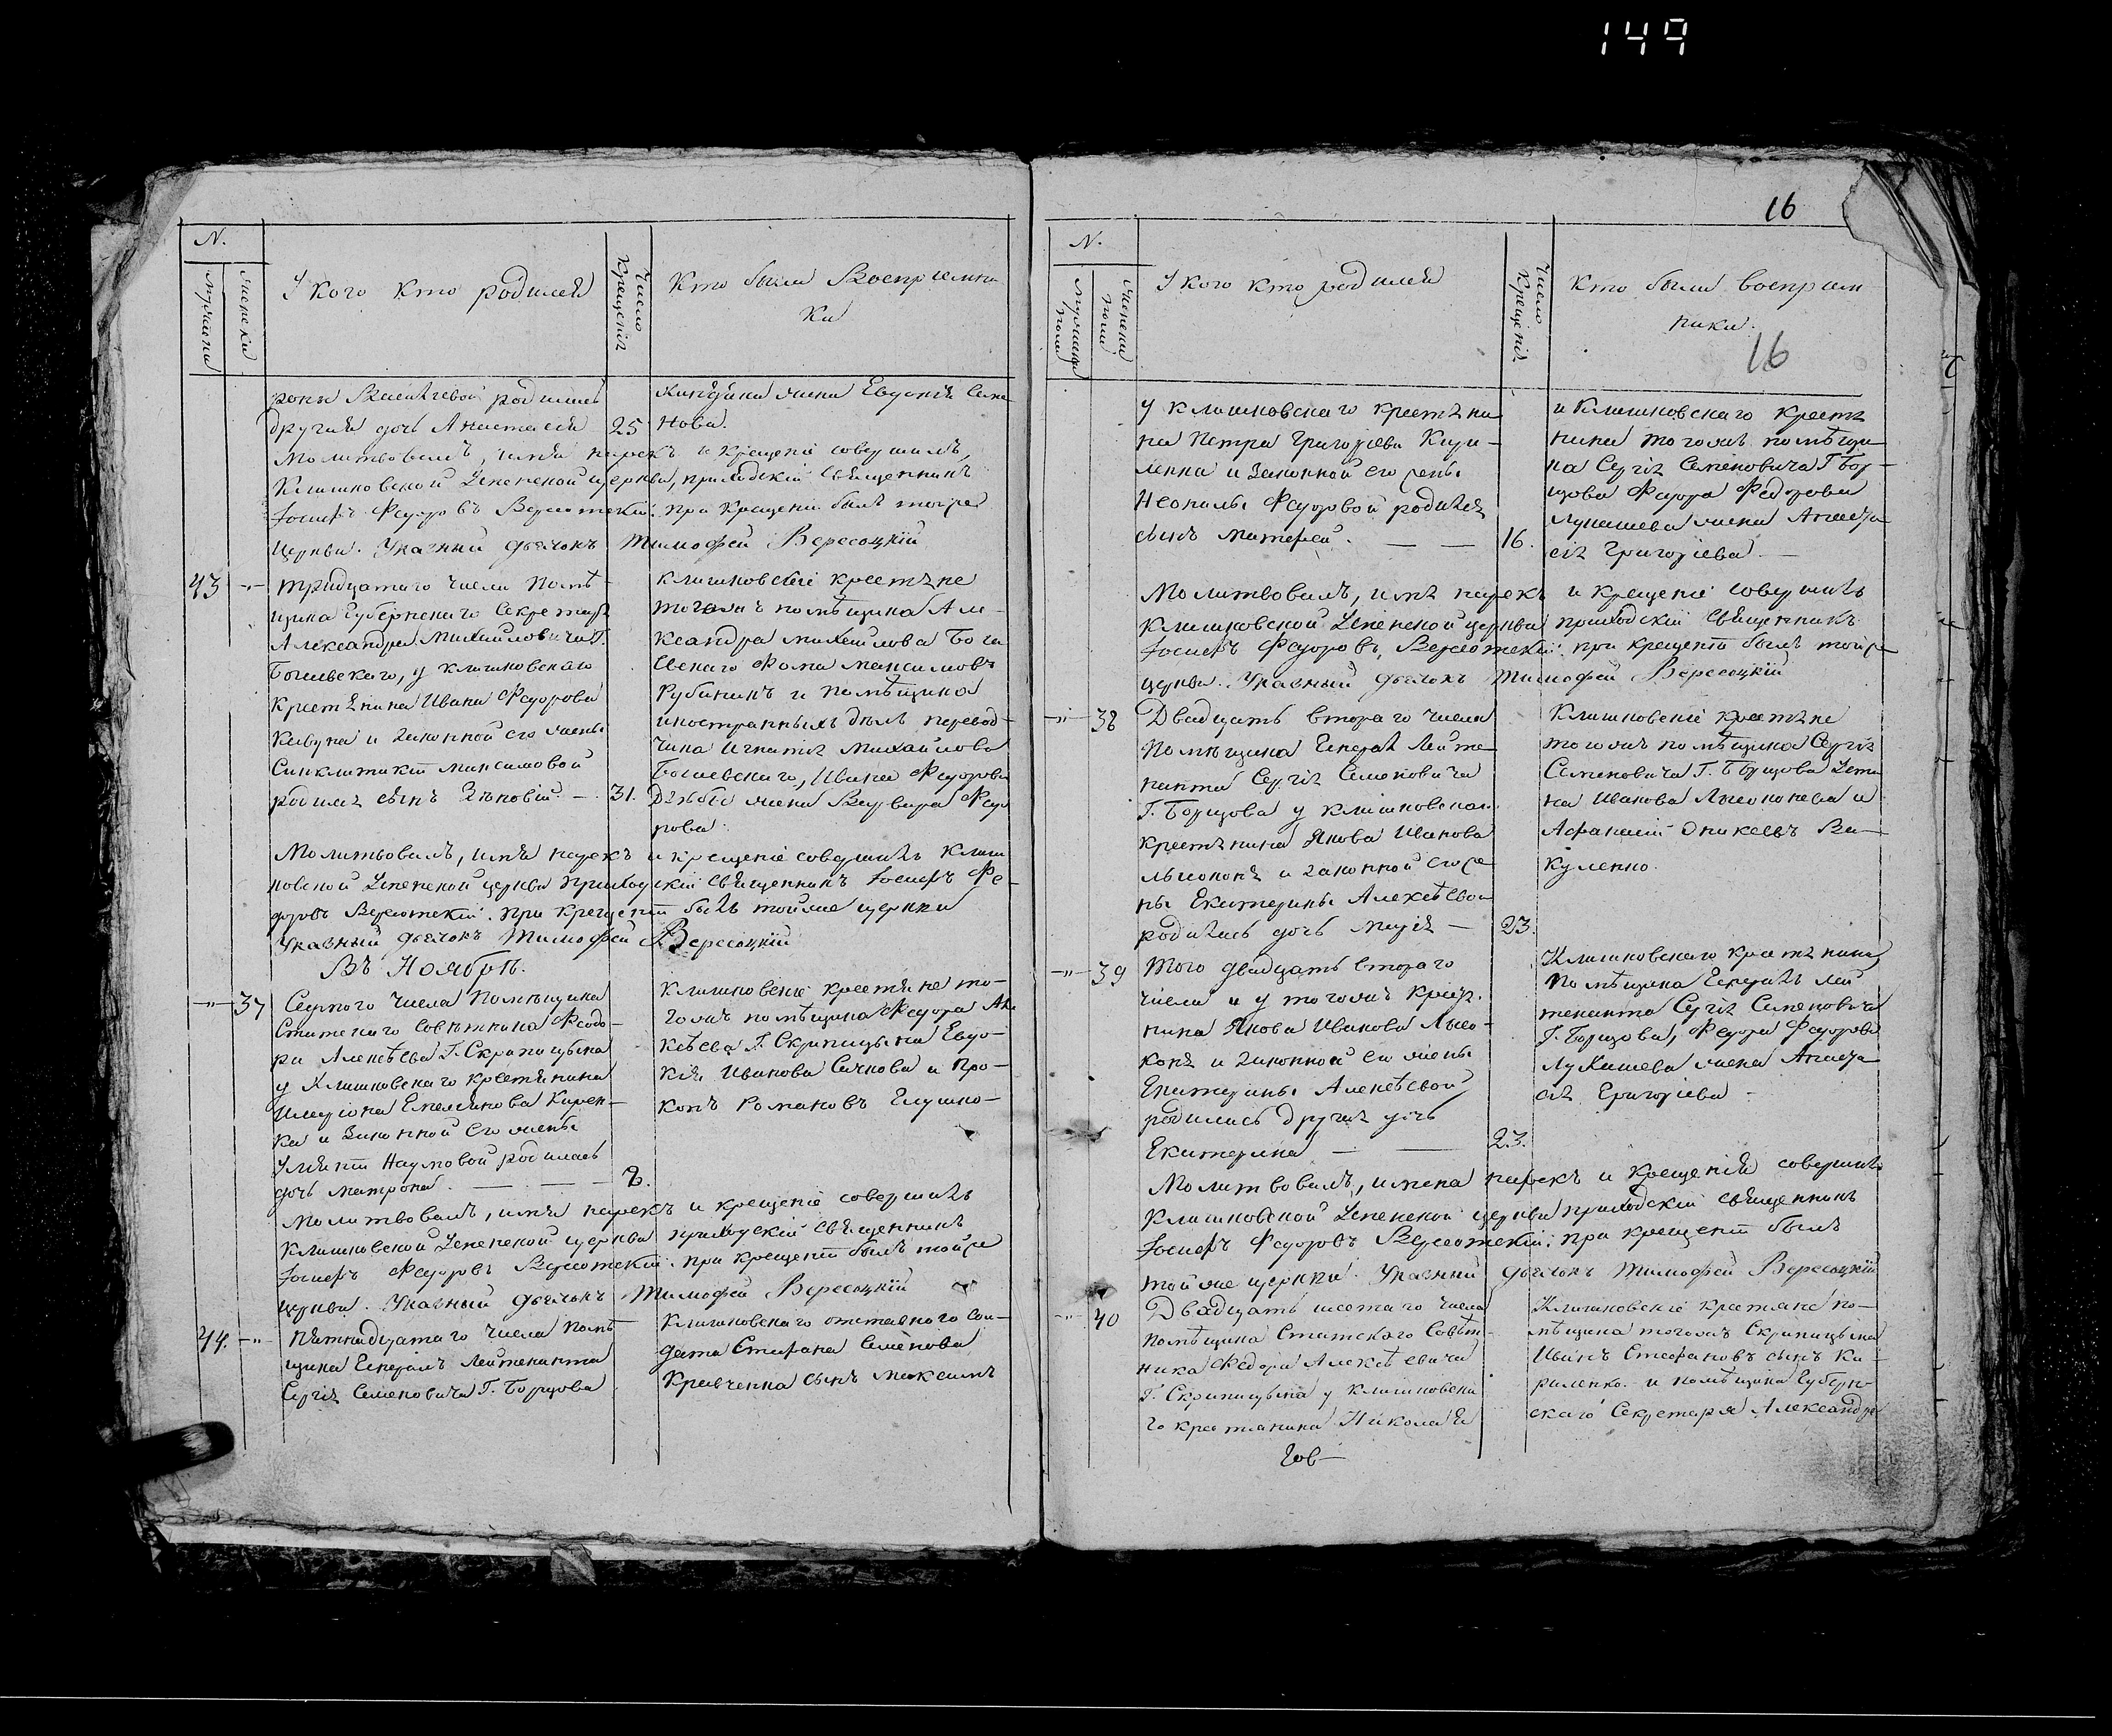 149
16
N.
Мужчины
Женски
У кого кто родился
Число Крещенія
Кто были Воспріемни
ки
родилась
другая дочь Анастасія 25
Молитвовалъ, имя нарекъ и крещеніе совершилъ,
Клишковской Успенской церкви, приходскій Священникъ
Іосифъ Федоровъ Вересотскій: при крещеніи былъ тойже
Церкви. Указный дьячокъ Тимофей Вересоцкій
жена Евдокія Семе
нова.
43 -"- Тридцатаго числа Помѣ-
щика Губернскаго Секретаря
Александра Михайловича Г.
у клишковскаго
Крестянина Ивана Федорова
и законной его жены
Синклитикіи Максимовой
родился сынъ Зѣновій. — 31.
клишковскіе крестяне
тогожъ помѣщика Але-
ксандра Михайлова
Фома Максимовъ
и помѣщика
иностранныхъ дѣлъ перевод-
чика Игнатія Михайлова
Ивана Федорова
жена Варвара Федо
рова.
Молитвовалъ, имя нарекъ и крещеніе совершилъ Клиш
ковской Успенской церкви приходскій священникъ Іосифъ Фе-
доровъ Вересотскій. при крещеніи былъ тойже церкви
Указный дьячокъ Тимофей Вересоцкій
Въ Ноябрѣ.
-"- 37 Седмого числа Помѣщика
Статскаго Совѣтника Федо-
ра Алексѣева Г. Скрипицына
у Клишковскаго крестянина
Иларіона Емельянова
ка и Законной его жены
Уліяніи Наумовой родилась
дочь Матрона. — — — 8.
Клишковскіе крестяне то-
гожъ помѣщика Федора Але
ксѣева Г. Скрипицына Евдо-
кія Иванова и Про-
копъ Романовъ Глушко-
Молитвовалъ, имя нарекъ и крещеніе совершилъ
Клишковской Успенской церкви приходскій священникъ
Іосифъ Федоровъ Вересотскій. при крещеніи былъ тойже
церкви. Указный дьячокъ Тимофей Вересоцкій
44. -"- Пятнадцатаго числа Помѣ
щика Генералъ Лейтенанта
Сергія Семеновича Г. Борщова
Клишковскаго отставного сол-
дата Стефана Семенова
Кравченка сынъ Максимъ
16
N.
Мужеска пола
Женска пола
У кого кто родился
Число Крещенія
Кто были воспріем
ники.
16
У клишковскаго крестяни
на Петра Григоріева Кири-
ленка и Законной его жены
Неонилы Федоровой родился
сынъ Матфей. — — 16.
и Клишковскаго крестя
нина тогожъ помѣщи
ка Сергія Семеновича Г. Бор-
щова Федора Федорова
Лукашева жена Анаста
сія Григоріева. —
Молитвовалъ, имя нарекъ и крещеніе совершилъ
Клишковской Успенской церкви приходскій священникъ
Іосифъ Федоровъ, Вересотскій: при крещеніи былъ тойже
церкви. Указный дьячокъ Тимофей Вересоцкій
-"- 38 Двадцать второго числа
Помѣщика Генералъ Лейте
нанта Сергія Семеновича
Г. Борщова у клишковскаго
крестянина Якова Иванова
и законной его же
ны Екатерины Алексѣевой
родилась дочь Марія — 23.
Клишковскіе крестяне
тогожъ помѣщика Сергія
Семеновича Г. Борщова
на Иванова и
Афанасій
куленко.
-"- 39 Того двадцать второго
числа и у тогожъ крестя
нина Якова Иванова
и законной его жены
Екатерины Алексѣевой
родилась другая дочь
Екатерина — — 23.
Клишковскаго крестянина,
Помѣщика Генералъ Лей
тенанта Сергія Семеновича
Г. Борщова, Федора Федорова
Лукашева жена Анаста
сія Григоріева -
Молитвовалъ, имена нарекъ и крещенія совершилъ
Клишковской Успенской церкви приходскій священникъ
Іосифъ Федоровъ Вересотскій: при крещеніи былъ
тойже церкви. Указный дьячокъ Тимофей Вересоцкій
-"- 40 Двадцать шестаго числа
помѣщика Статского Совѣт-
ника Федора Алексѣевича
Г. Скрипицына у клишковска
го крестянина Николая
Клишковскіе крестяне по-
мѣщика тогожъ Скрипицына
Иванъ Стефановъ сынъ Ки-
риленко. и помѣщика Губерн-
скаго Секретаря Александра